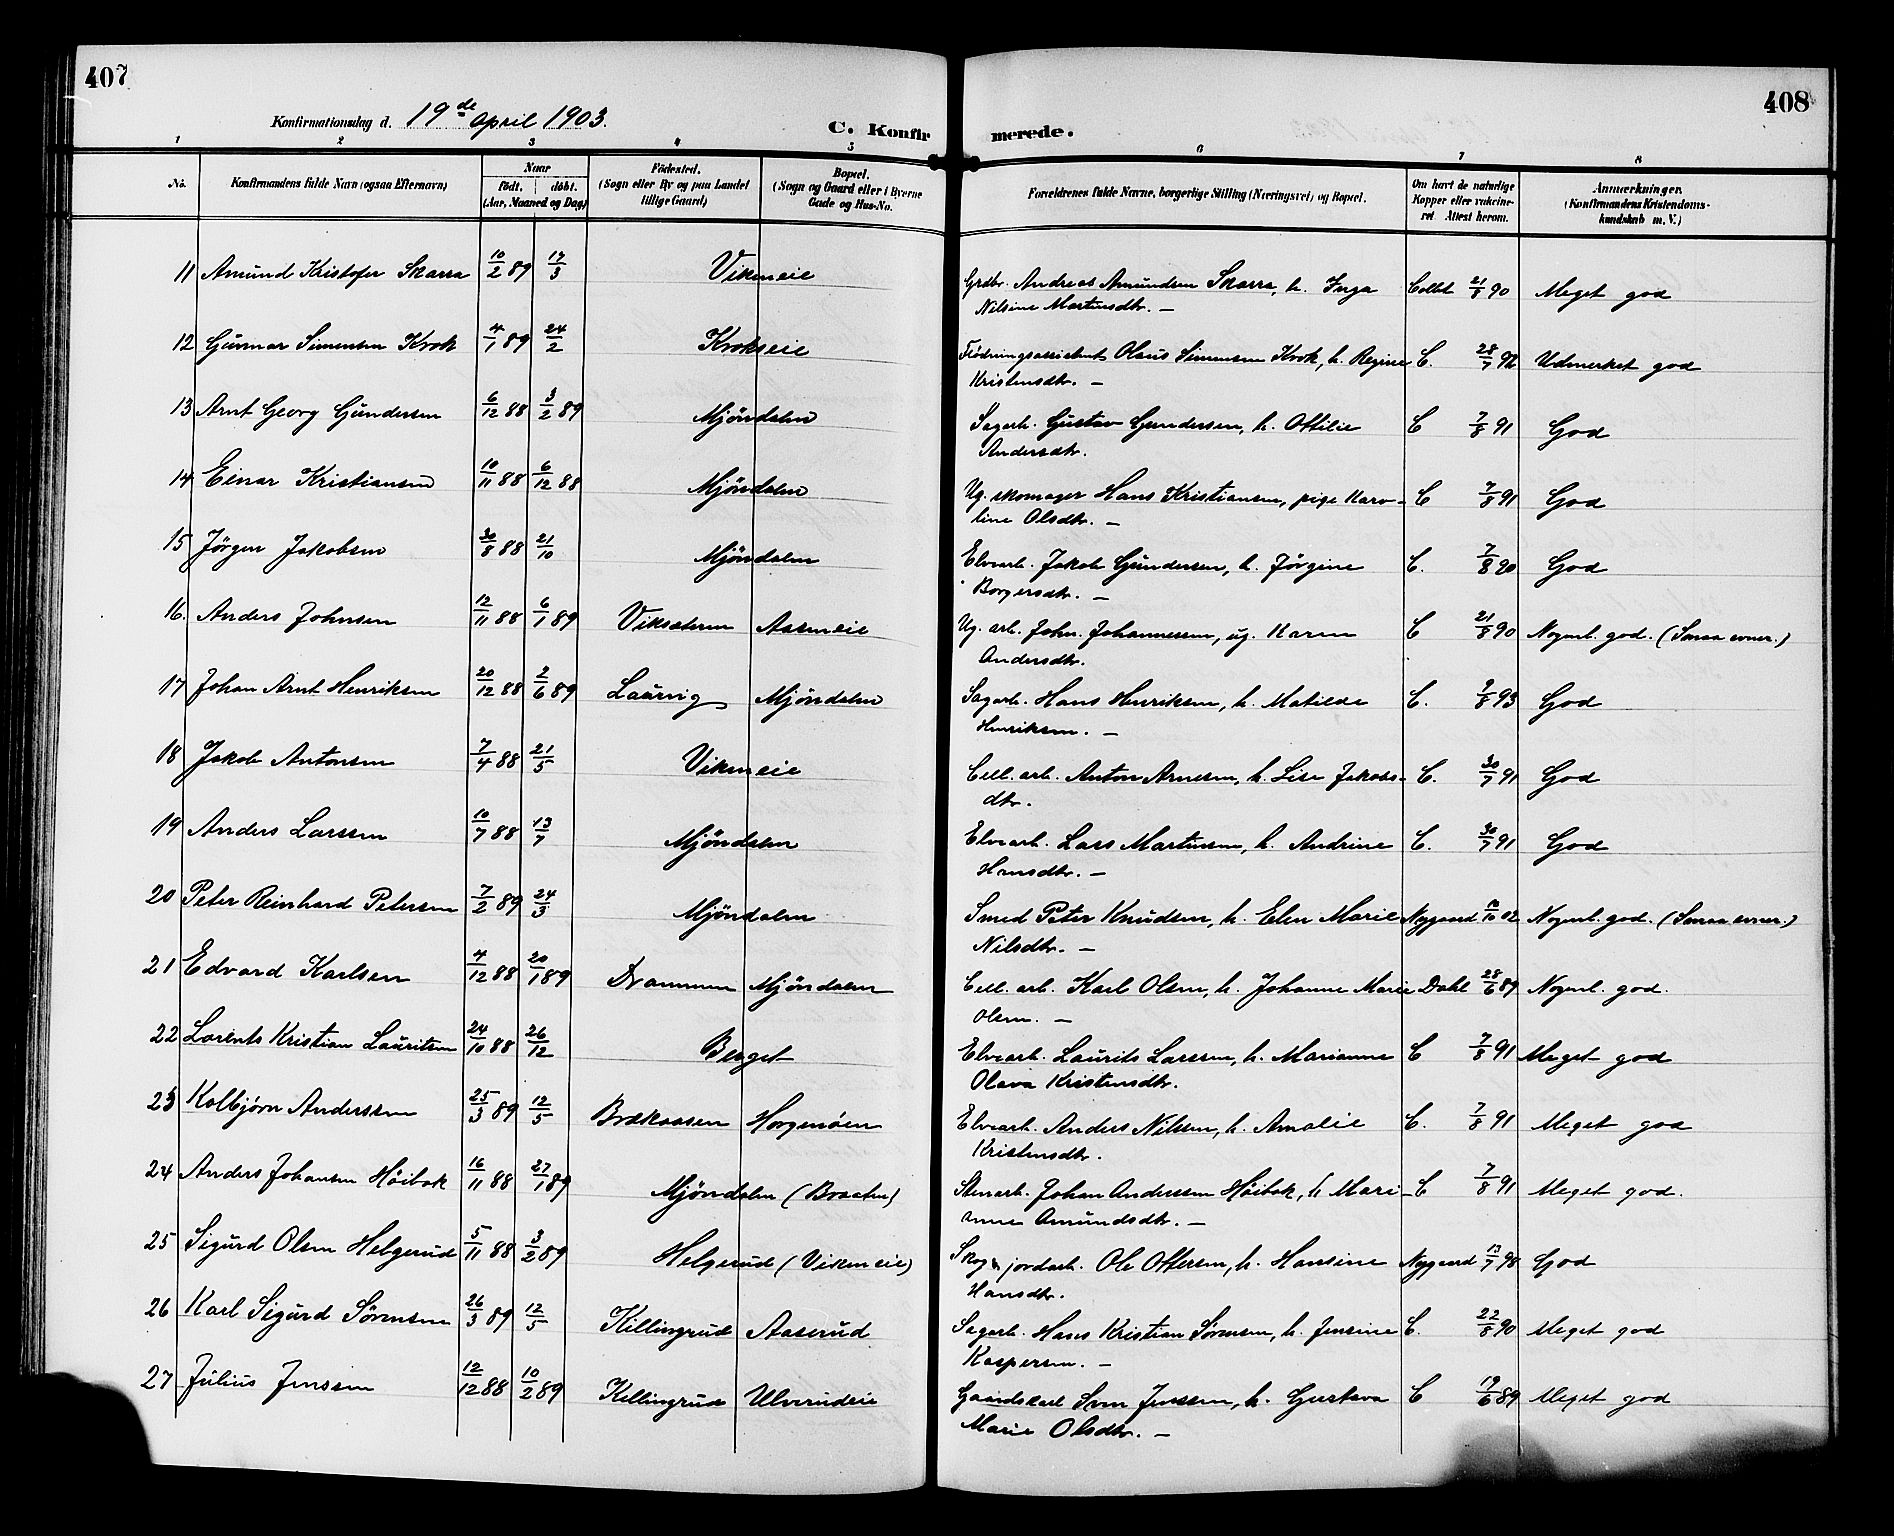 407
408
Konfirmationsdag d. 19de April 1903.
C. Konfirmerede.
1 2 3 4 5 6 7 8
No.
Konfirmandens fulde Navn (ogsaa Efternavn)
Naar
født. døbt.
(Aar, Maaned og Dag)
Födested.
(Sogn eller By og paa Landet
tillige Gaard)
Bopæl.
(Sogn og Gaard eller i Byerne
Gade og Hus-No.
Forældrenes fulde Navne, borgerlige Stilling (Næringsvei) og Bopæl.
Om havt de naturlige
Kopper eller vakcine-
ret Attest herom.
Anmærkninger.
(Konfirmandens Kristendoms-
kundskab m. V.)
11 Amund Kristofer Skarra 10/2 89 17/3 Vikeneie Grdbr. Andreas Amundsen Skarra, h. Inga Collet 21/8 90 Meget god
Nilsine Martinsdtr. —
12 Gunnar Simensen Krok 4/1 89 24/2 Krokseie Flödningsassistent Olaus Simensen Krok, h. Regine C. 28/7 92 Udmerket god
Kristensdtr. —
13 Arnt Georg Gundersen 6/12 88 3/2 89 Mjöndalen Sagarb. Gustav Gundersen, h. Ottilie C 7/8 91 God
Andersdtr.
14 Einar Kristiansen 10/11 88 6/12 88 Mjöndalen Ug. skomager Hans Kristiansen, pige Karo- C 7/8 91 God
line Olsdtr. —
15 Jørgen Jakobsen 30/8 88 21/10 Mjöndalen Elvearb. Jakob Gundersen, h. Jørgine C. 7/8 90 God
Borgersdtr. —
16. Anders Johnsen 12/11 88 6/1 89 Viksæteren Aaseneie Ug. arb. John Johannessen, ug. Karen C 21/8 90 Nogenl. god. (Smaa evner.)
Andersdtr.
17 Johan Arnt Henriksen 20/12 88 2/6 89 Laurvig Mjöndalen Sagarb. Hans Henriksen, h. Matilde C. 9/8 93 God
Henriksen. —
18 Jakob Antonsen 7/4 88 21/5 Vikeneie Cell. arb. Anton Arnesen, h. Lise Jakobs- C. 30/7 91 God
dtr.
19 Anders Larssen 10/7 88 13/7 Mjöndalen Elvearb. Lars Martinsen, h. Andrine C. 30/7 91 God
Hansdtr. —
20 Peter Reinhard Petersen 7/2 89 24/3 Mjöndalen Smed Peter Knudsen, h. Elen Marie Nygaard 02 Nogenl. god. (Smaa evner.)
Nilsdtr. —
21 Edvard Karlsen 4/12 88 20/1 89 Drammen Mjöndalen Cell. arb. Karl Olsen, h. Johanne Marie Dahl 28/6 89 Nogenl. god.
Olsen. —
22 Lorents Kristian Lauritsen 24/10 88 26/12 Berget Elvearb. Laurits Larssen, h. Marianne C 7/8 91 Meget god
Olava Kristensdtr.
23 Kolbjørn Anderssen 25/3 89 12/5 Brækaasen Horgemoen Elvearb. Anders Nilssen, h. Amalie C. 7/8 91 Meget god
Kristensdtr.
24 Anders Johansen Höibak 16/11 88 27/1 89 Mjöndalen (Braaten) Stenarb. Johan Anderssen Höibak, h. Mari- C 7/8 91 Meget god.
anne Amundsdtr. —
25 Sigurd Olsen Helgerud 5/11 88 3/2 89 Helgerud (Vikeneie) Skog & jordarb. Ole Ottersen, h. Hansine Nygaard 13/7 98 God
Hansdtr.
26 Karl Sigurd Sørensen 26/3 89 12/5 Killingrud Aaserud Sagarb. Hans Kristian Sørensen, h. Jensine C. 22/8 90 Meget god
Kaspersen. —
27 Julius Jenssen 12/12 88 10/2 89 Killingrud Ulverudeie Gaardskarl Sven Jenssen, h. Gustava C 19/6 89 Meget god
Marie Olsdtr. —